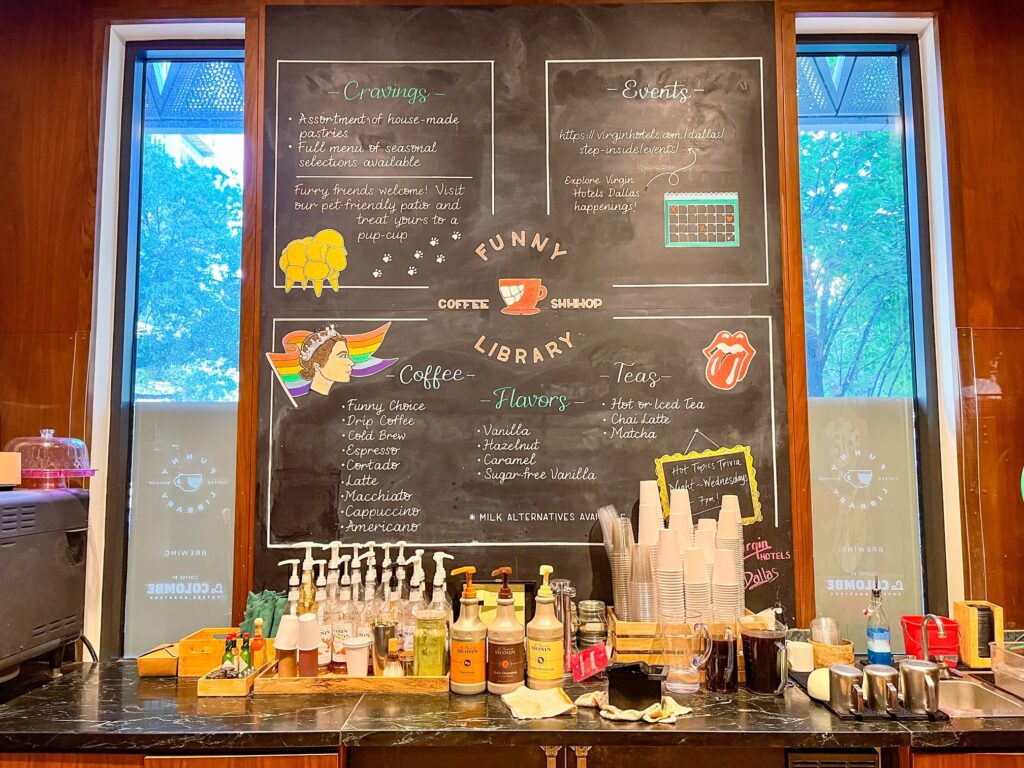 -Cravings-
• Assortment of house-made
pastries
• Full menu of seasonal
selections available
Furry friends welcome! Visit
our pet-friendly patio and
treat yours to a
pup-cup
-Events-
https://virginhotels.com/dallas/
step-inside/events/
Explore Virgin
Hotels Dallas
happenings!
FUNNY
COFFEE SHHHOP
LIBRARY
-Coffee-
• Funny Choice
• Drip Coffee
• Cold Brew
• Espresso
• Cortado
• Latte
• Macchiato
• Cappuccino
• Americano
-Flavors-
• Vanilla
• Hazelnut
• Caramel
• Sugar-free Vanilla
* MILK ALTERNATIVES AVAI
-Teas-
• Hot or Iced Tea
• Chai Latte
• Matcha
Hot Topics Trivia
Night - Wednesdays
7pm!
Virgin
HOTELS
Dallas
FUNNY
COFFEE SHHHOP
LIBRARY
BREWING
COFFEE BY
La COLOMBE
COFFEE ROASTERS
FUNNY
COFFEE SHHHOP
LIBRARY
BREWING
COFFEE BY
La COLOMBE
COFFEE ROASTERS
MONIN
MONIN
MONIN